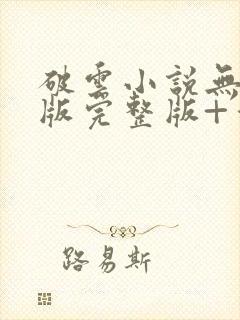 破雲小說無
版完整版+
路易斯